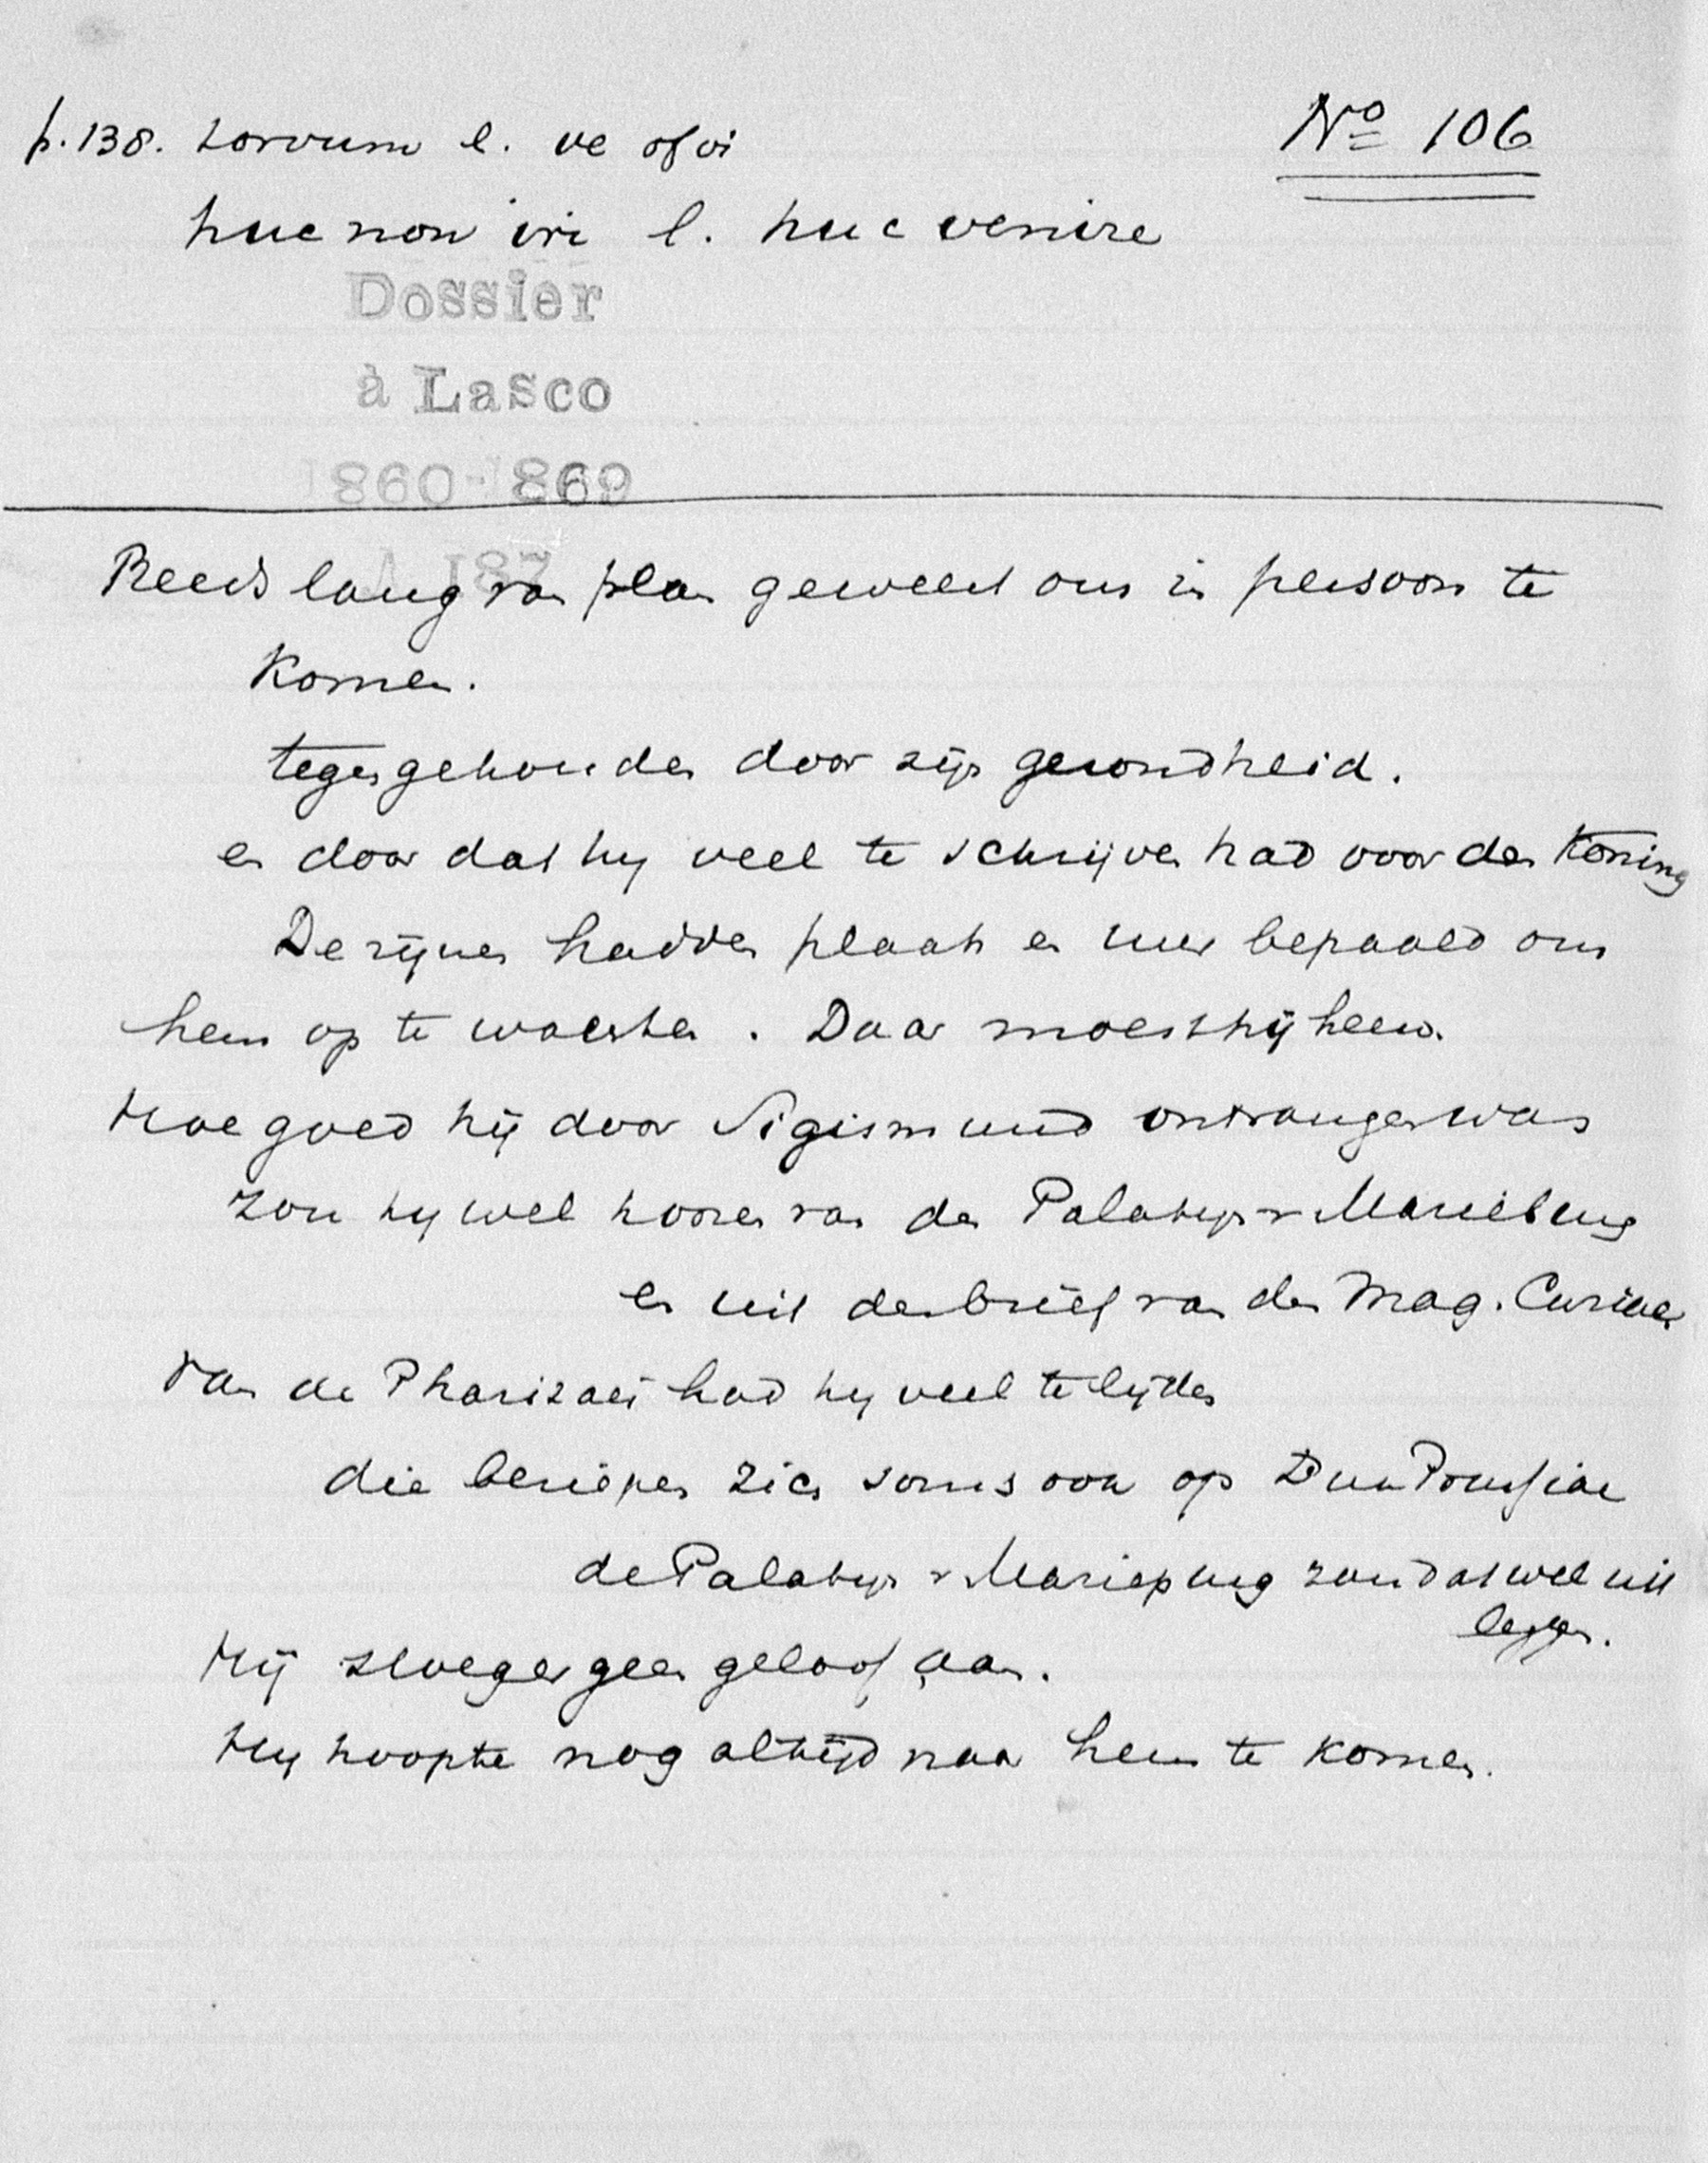 p. 138. torvum l. ve of vi
No 106
huc non iri l. huc venire
Dossier
à Lasco
1860-1869
Reeds lang van plan geweest om in persoon te
komen.
tegengehouden door zijn gezondheid.
en door dat hy veel te schrijven had voor den Koning
De zijnen hadden plaats en uur bepaald om
hem op te wachten. Daar moest hij heen.
Hoe goed hij door Sigismund ontvangen was
zou hy wel hooren van den Palatijn v Marieburg
en uit den brief van den Mag. Curiae
Van de Pharizaei had hy veel te lijden
die beriepen zich soms ook op Dux Prussiae
de Palatijn v Marieburg zou dat wel uit
leggen.
Hij sloeg er geen geloof aan.
Hy hoopte nog altijd naar hem te komen.